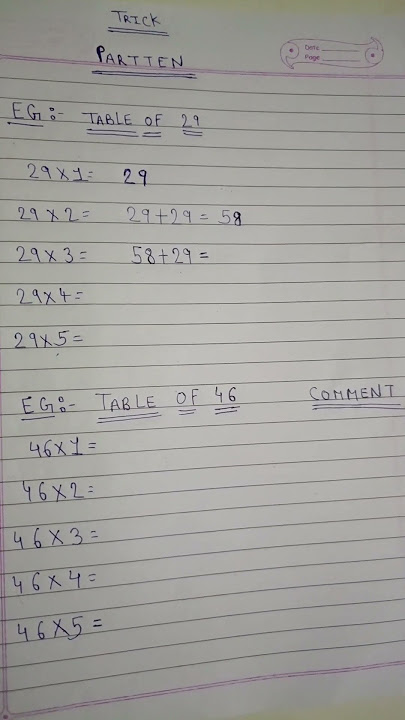 TRICK
PARTTEN
Date
Page
EG:- TABLE OF 29
29×1= 29
29×2= 29+29= 58
29×3= 58+29=
29×4=
29×5=
EG:- TABLE OF 46 COMMENT
46×1=
46×2=
46×3=
46×4=
46×5=